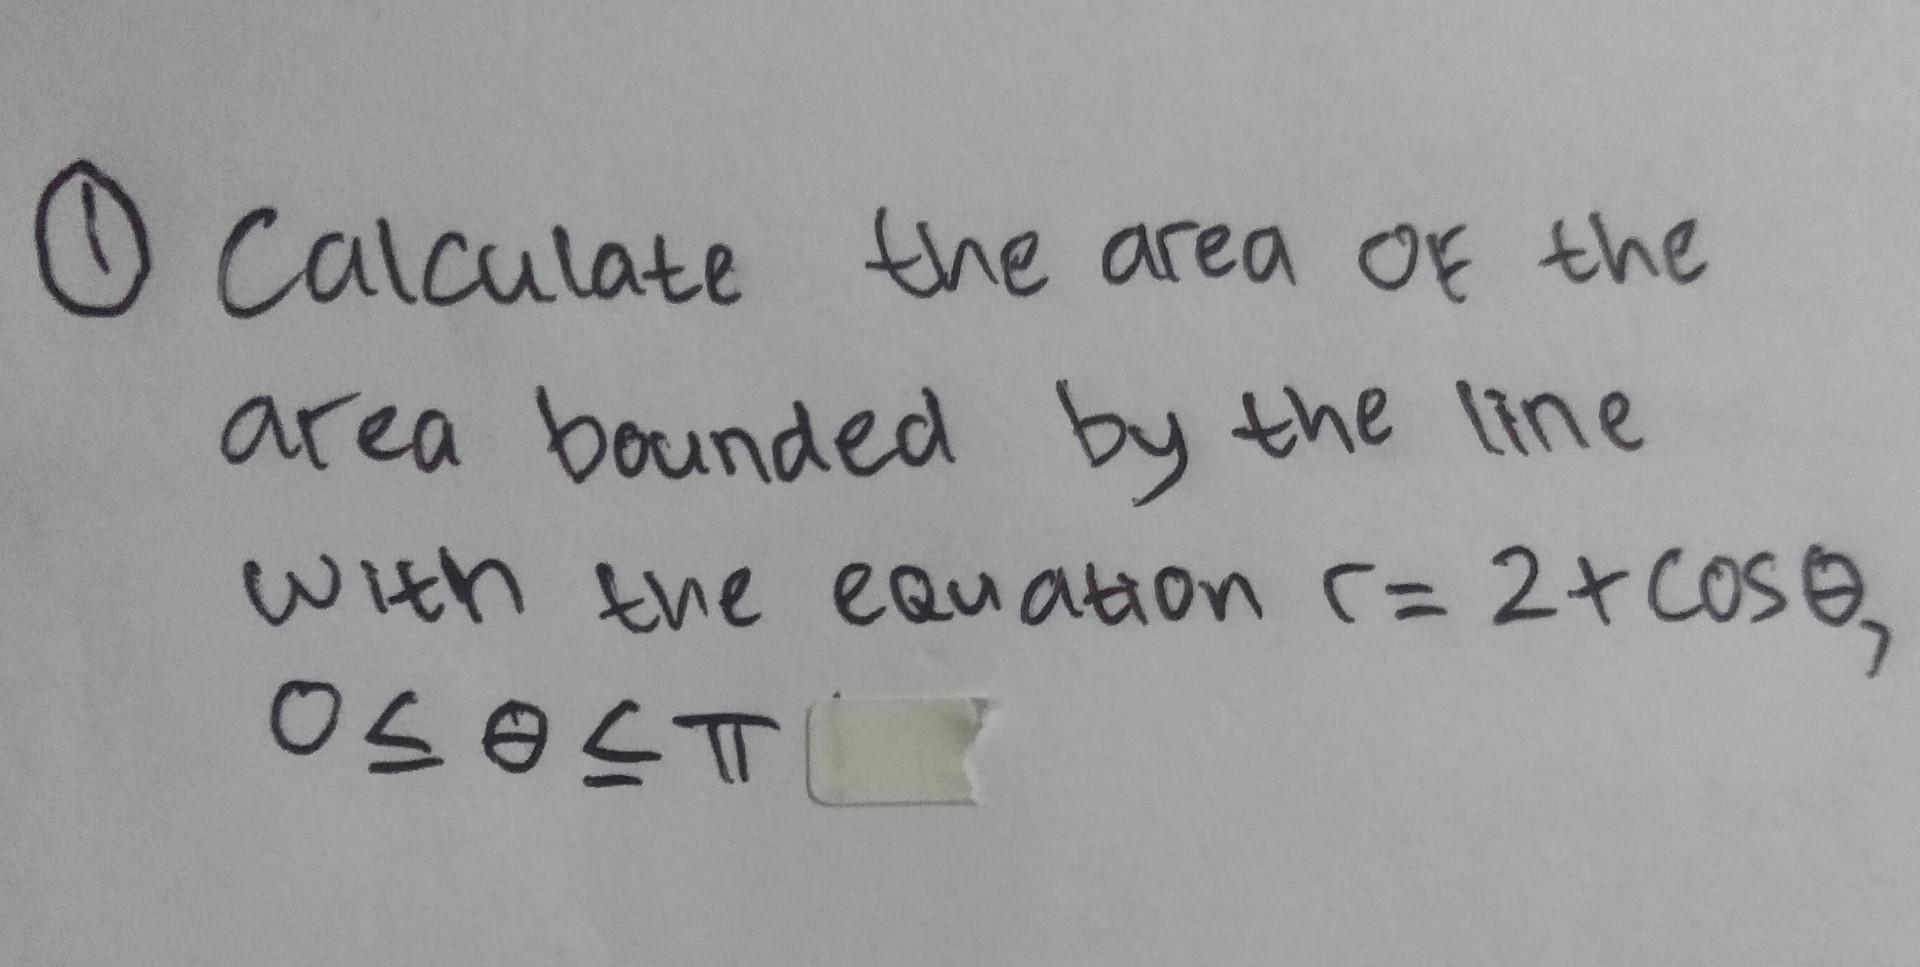 ① Calculate the area of the
area bounded by the line
with the equation r = 2 + cos θ,
0 ≤ θ ≤ π